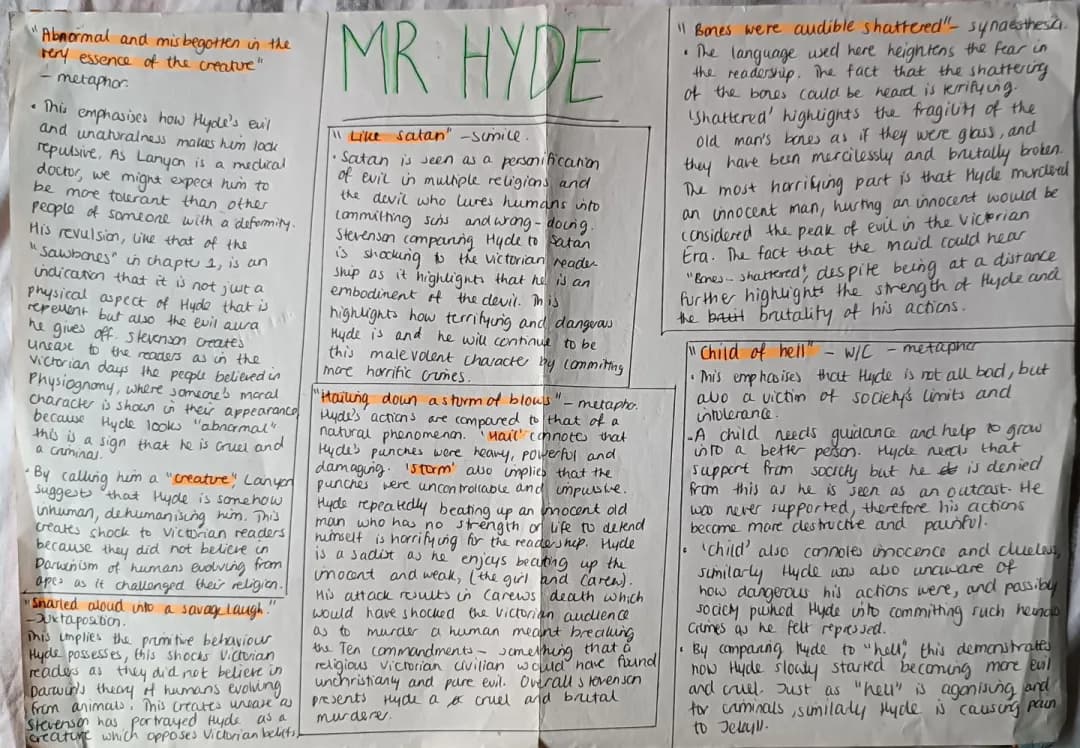 "Abnormal and misbegotten in the
very essence of the creature"
- metaphor.
• This emphasises how Hyde's evil
and unaturalness makes him look
repulsive. As Lanyon is a medical
doctor, we might expect him to
be more tolerant than other
people of someone with a deformity.
His revulsion, like that of the
"Sawbones" in chapter 1, is an
indication that it is not just a
physical aspect of Hyde that is
repellent but also the evil aura
he gives off. Stevenson creates
unease to the readers as in the
Victorian days the people believed in
Physiognomy, where someone's moral
character is shown in their appearance
because Hyde looks "abnormal"
this is a sign that he is cruel and
a criminal.
• By calling him a "creature", Lanyon
suggests that Hyde is somehow
inhuman, dehumanising him. This
creates shock to Victorian readers
because they did not believe in
Darwinism of humans evolving from
apes as it challenged their religion.
"Snarled aloud into a savage laugh."
- Juxtaposition.
This implies the primitive behaviour
Hyde possesses, this shocks Victorian
readers as they did not believe in
Darwin's theory of humans evolving
from animals. This creates unease as
Stevenson has portrayed Hyde as a
creature which opposes Victorian beliefs.
MR HYDE
"Like Satan" - Simile.
• Satan is seen as a personification
of evil in multiple religions and
the devil who lures humans into
committing sins and wrong-doing.
Stevenson comparing Hyde to Satan
is shocking to the Victorian reader
ship as it highlights that he is an
embodiment of the devil. This
highlights how terrifying and dangerous
Hyde is and he will continue to be
this malevolent character by committing
more horrific crimes.
"Hailing down a storm of blows" - metaphor.
Hyde's actions are compared to that of a
natural phenomenon. 'Hail' connotes that
Hyde's punches were heavy, powerful and
damaging. 'Storm' also implies that the
punches were uncontrollable and impulsive.
Hyde repeatedly beating up an innocent old
man who has no strength or life to defend
himself is horrifying for the readership. Hyde
is a sadist as he enjoys beating up the
innocent and weak, (the girl and Carew).
His attack results in Carews death which
would have shocked the Victorian audience
as to murder a human meant breaking
the Ten commandments - something that a
religious Victorian civilian would have found
unchristianly and pure evil. Overall Stevenson
presents Hyde a cruel and brutal
murderer.
"Bones were audible shattered" - synaesthesia.
• The language used here heightens the fear in
the readership. The fact that the shattering
of the bones could be heard is terrifying.
'Shattered' highlights the fragility of the
old man's bones as if they were glass, and
they have been mercilessly and brutally broken.
The most horrifying part is that Hyde murdered
an innocent man, hurting an innocent would be
considered the peak of evil in the Victorian
Era. The fact that the maid could hear
"Bones... shattered", despite being at a distance
further highlights the strength of Hyde and
the brutality of his actions.
"Child of hell" - W/C - metaphor
• This emphasises that Hyde is not all bad, but
also a victim of society's limits and
intolerance.
- A child needs guidance and help to grow
into a better person. Hyde needs that
support from society but he is denied
from this as he is seen as an outcast. He
was never supported, therefore his actions
become more destructive and painful.
• 'Child' also connotes innocence and clueless,
similarly Hyde was also unaware of
how dangerous his actions were, and possibly
society pushed Hyde into committing such heinous
crimes as he felt repressed.
• By comparing Hyde to "hell", this demonstrates
how Hyde slowly started becoming more evil
and cruel. Just as "hell" is agonising and
for criminals, similarly Hyde is causing pain
to Jekyll.